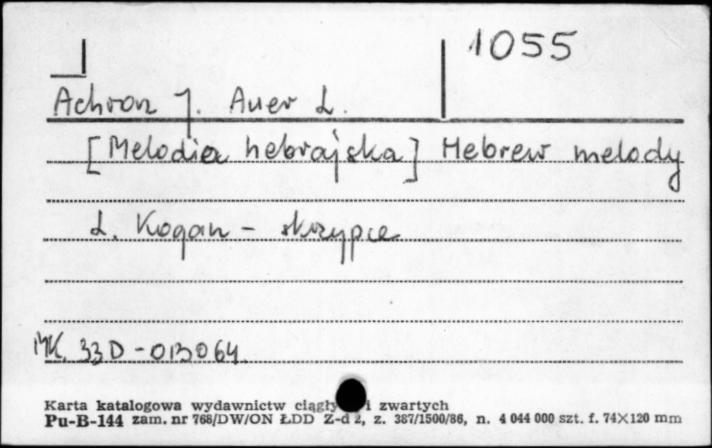 1055
Achron J. Auer L.
[Melodia hebrajska] Hebrew melody
L. Kogan - skrzypce
MK. 33D-013064
Karta katalogowa wydawnictw ciągły i zwartych
Pu-B-144 zam. nr 768/DW/ON ŁDD Z-d 2, z. 387/1500/86, n. 4 044 000 szt. f. 74×120 mm